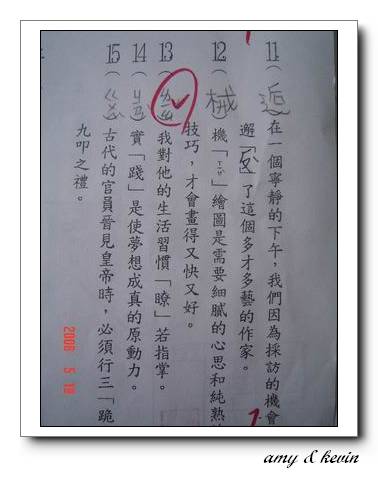 11（逅）在一個寧靜的下午，我們因為採訪的機會
邂「」了這個多才多藝的作家。
12（械）機「ㄒㄧㄝˋ」繪圖是需要細膩的心思和純熟
技巧，才會畫得又快又好。
13（ㄌㄧㄠˇ）我對他的生活習慣「瞭」若指掌。
14（ㄐㄧㄢˋ）實「踐」是使夢想成真的原動力。
15（ㄍㄨㄟˋ）古代的官員晉見皇帝時，必須行三「跪
九叩之禮。
2008 5 19
amy & kevin